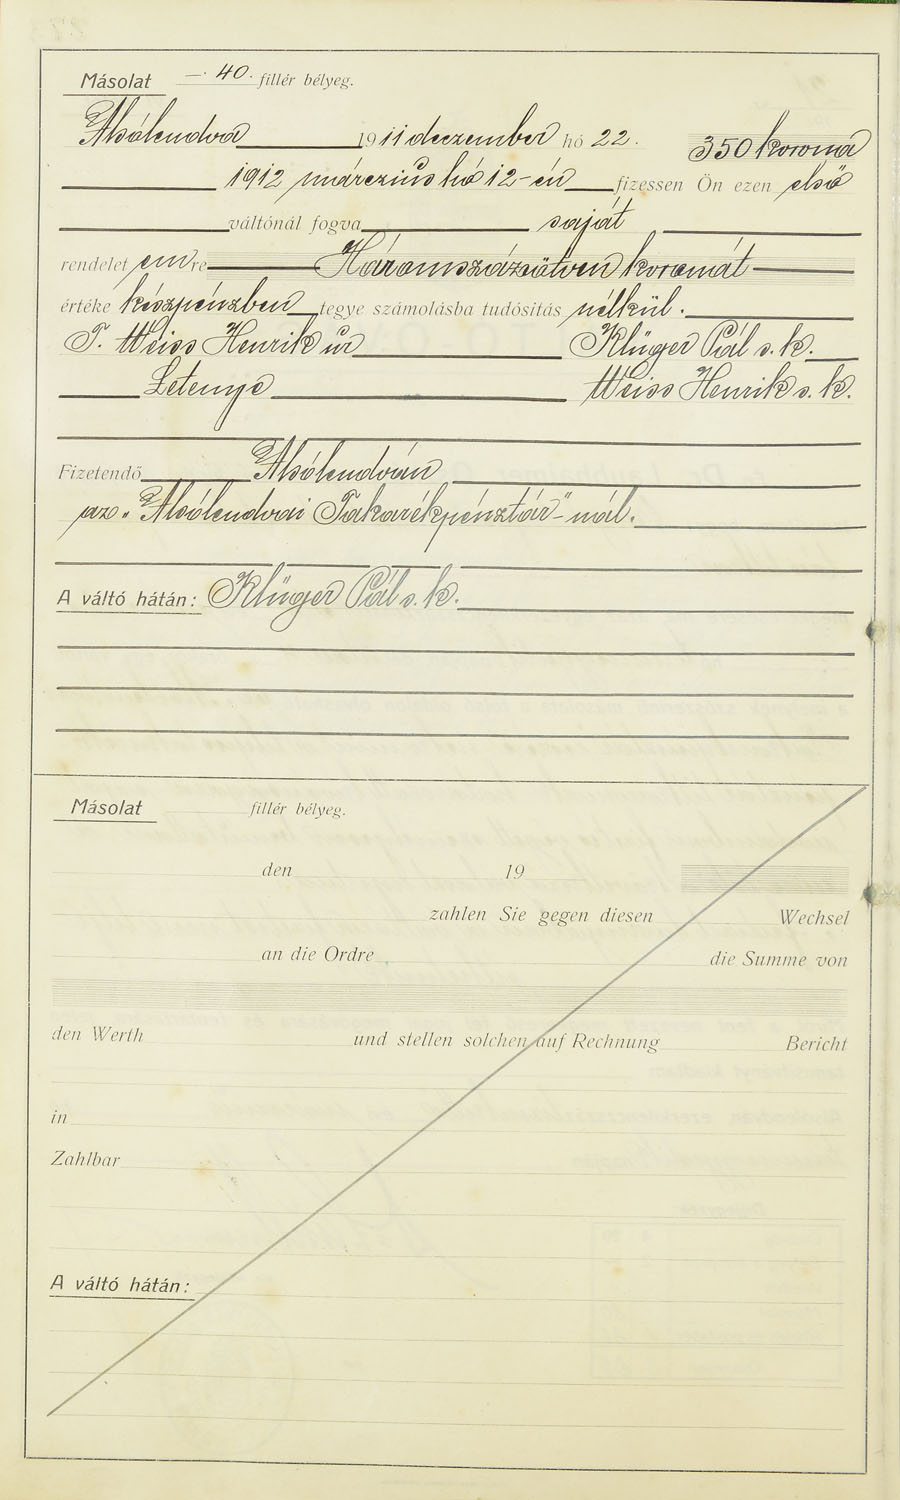 Másolat —. 40. fillér bélyeg.
Alsólendva 1911 deczember hó 22. 350 korona
1912 márczius hó 12-én fizessen Ön ezen első
váltónál fogva saját
rendelet emre Háromszázötven koronát
értéke készpénzben tegye számolásba tudósítás nélkül.
T. Weiss Henrik úr Klüger Pál s. k.
Letenye Weiss Henrik s. k.
Fizetendő Alsólendván
az „Alsólendvai Takarékpénztár"-nál.
A váltó hátán: Klüger Pál s. k.
Másolat fillér bélyeg.
den 19
zahlen Sie gegen diesen Wechsel
an die Ordre die Summe von
den Werth und stellen solchen auf Rechnung Bericht
in
Zahlbar
A váltó hátán: